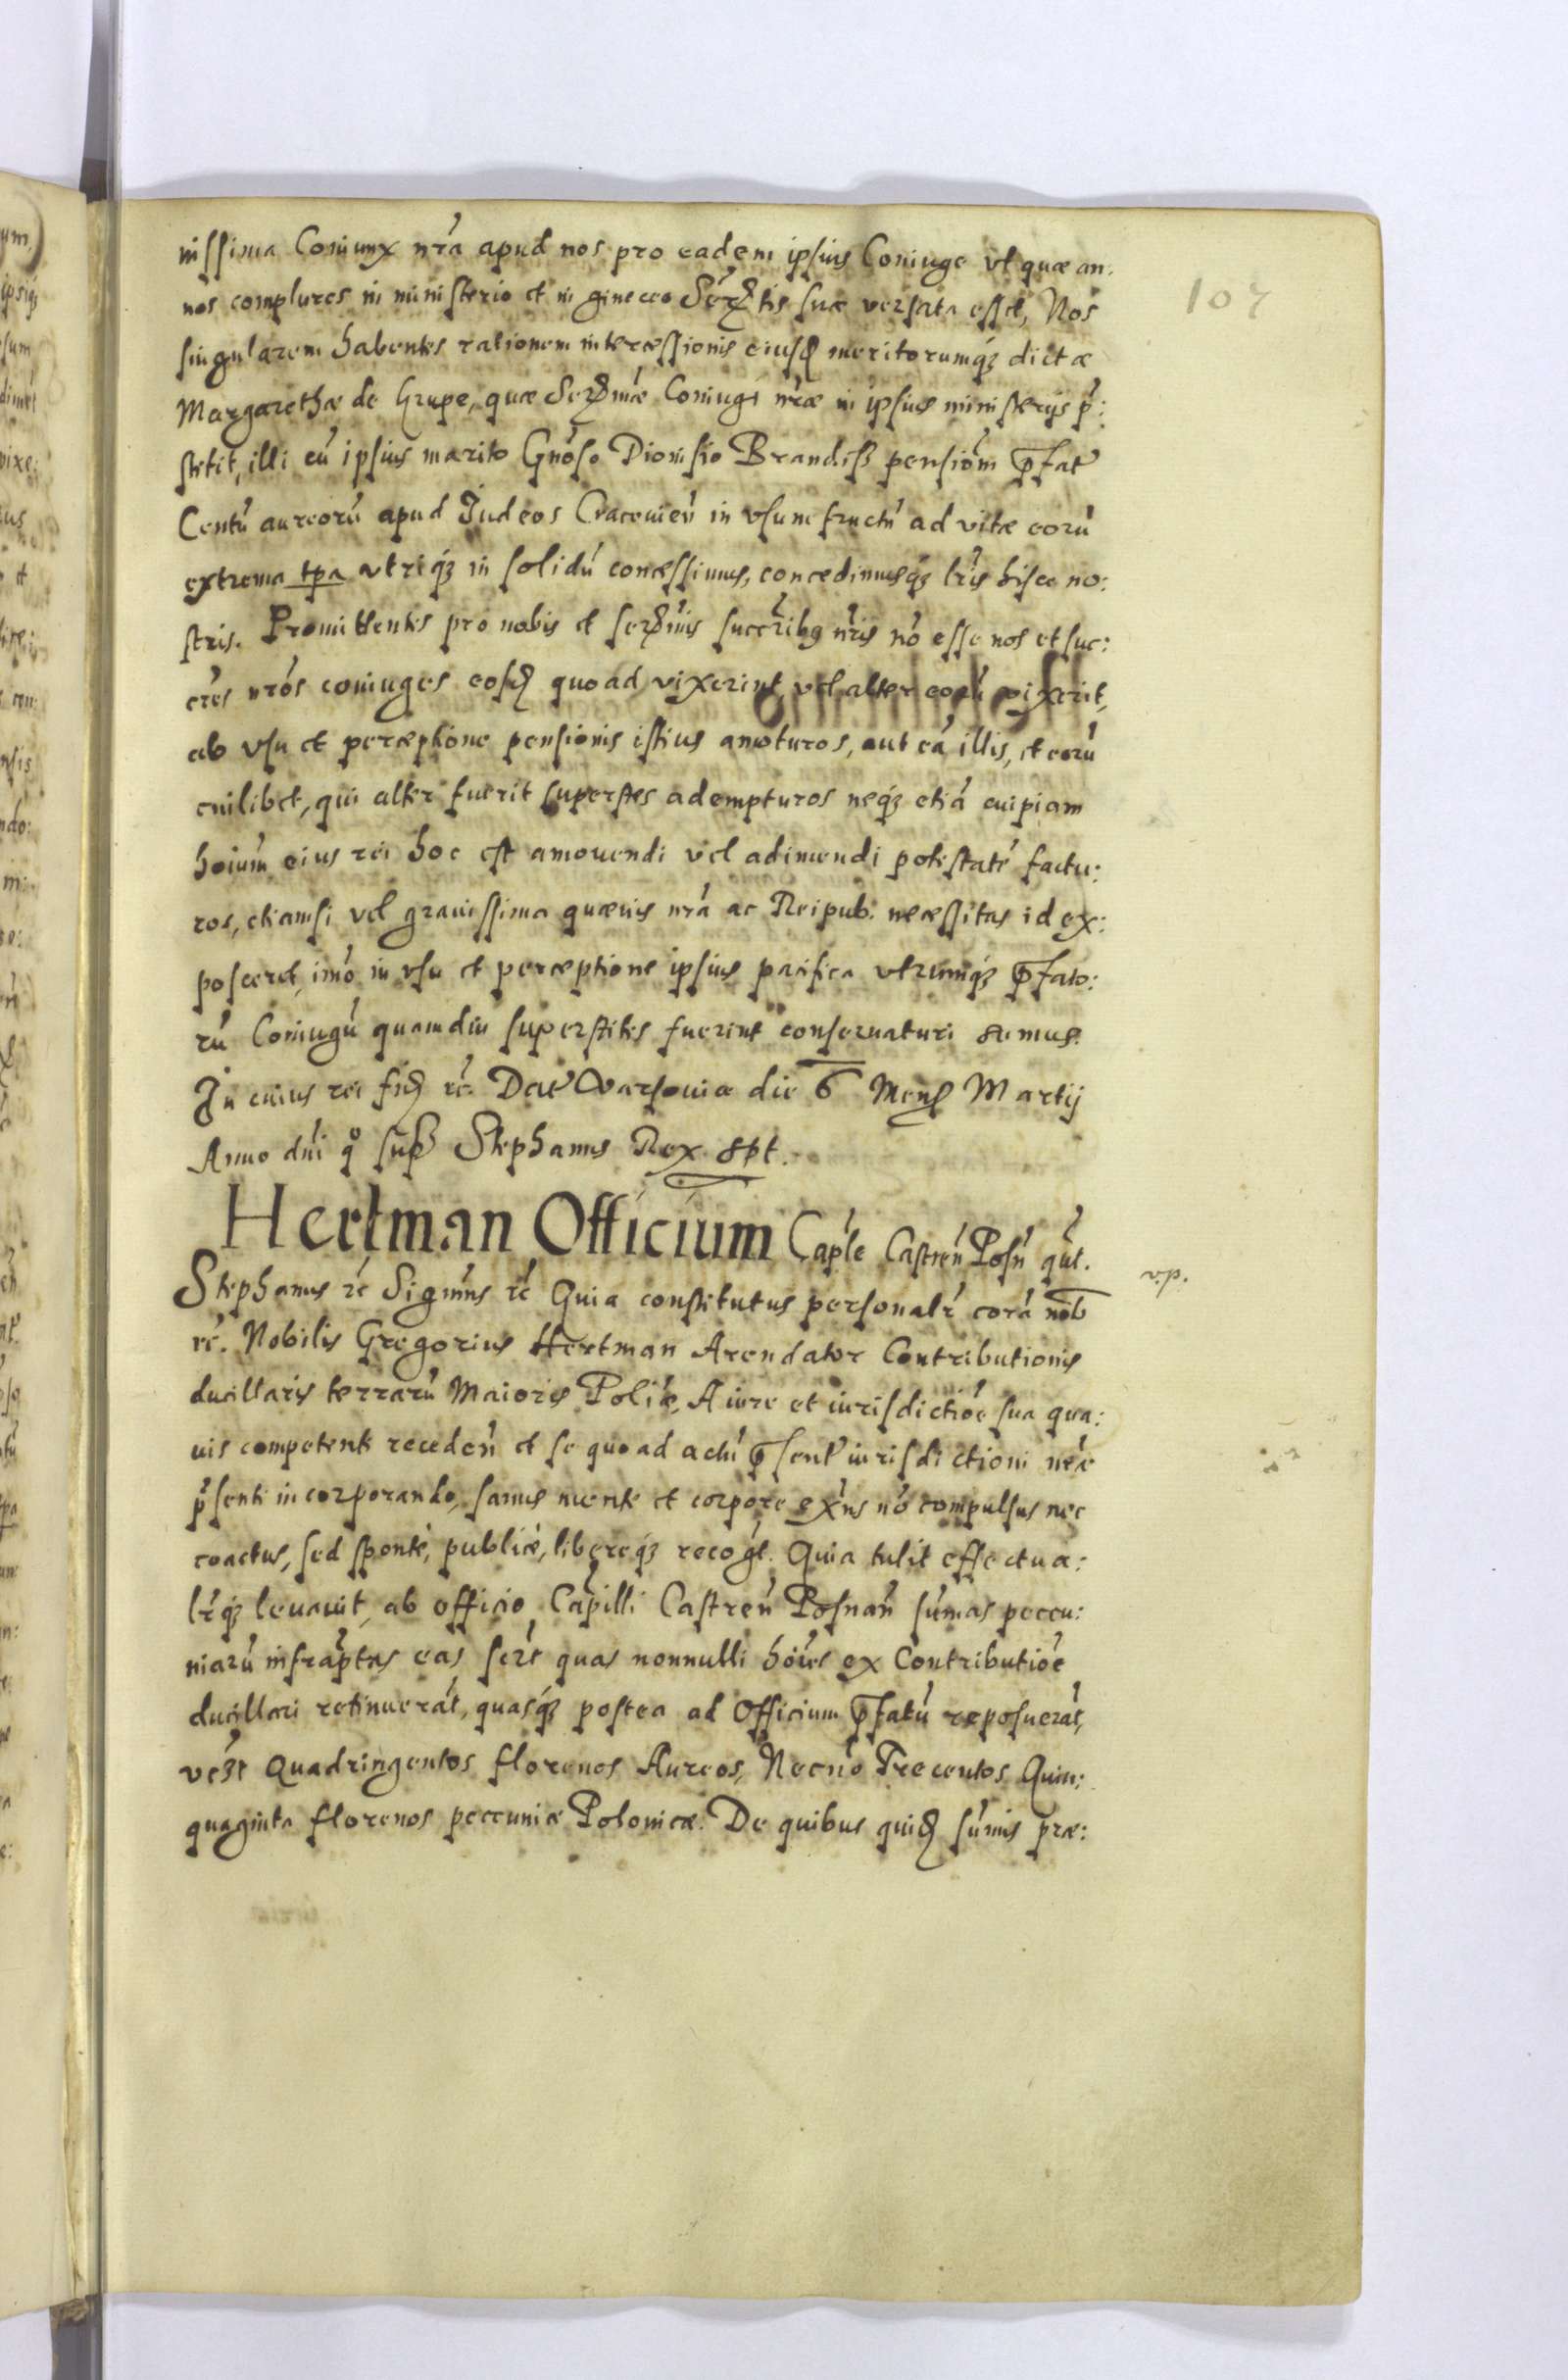 107
nissima Coniunx nr̃a apud nos pro eadem ipsius Coniuge vt quæ an.
nos complures in ministerio et in gineceo Serẽtis suæ versata esset, Nos
singularem habentes rationem intercessionis eiusd meritorumq́ꝫ dictæ
Margarethæ de Grupe, quæ Serm̃æ Coniugi nr̃æ in ipsius ministerijs p̃:
stetit, illi cũ ipsius marito Gnõso Dionisio Brandiß pensiõm p̃fat
Centũ aureorũ apud Judeos Cracouieñ in vsumfructũ ad vitæ eorũ
extrema tp̃a vtriq́ꝫ in solidũ concessimus, concedimusq́ꝫ lr̃is hisce no:
stris. Promittentes pro nobis et serm̃is succr̃ibꝫ nr̃is nõ esse nos et suc:
cr̃es nr̃os coniuges eosd quoad vixerint, vel alter eorũ vixerit,
ab vsu et perceptione pensionis istius amoturos, aut eã illis, et eorũ
cuilibet, qui alteri fuerit superstes adempturos neq́ꝫ etiã cuipiam
hoium̃ eius rei hoc est amouendi vel adimendi potestatẽ factu:
ros, etiamsi vel grauissima quæuis nr̃a ac Reipub. necessitas id ex:
posceret, imõ in vsu et perceptione ipsius pacifica vtrumq́ꝫ p̃fato:
rũ Coniugũ quamdiu superstites fuerint conseruaturi sumus.
In cuius rei fid rc̃. Dat Varsouiæ die 6 Mens Martij
Anno dñi q̊ sup̃ Stephanus Rex spt.
Hertman Officium Cap̃le Castreñ Posñ qũt.
v.p.
Stephanus rc̃ Signm̃us rc̃ Quia constitutus personalr̃ corã nob
rc̃. Nobilis Gregorius Hertman Arendator Contributionis
ducillaris terrarũ Maioris Poliæ, A iure et iurisdictiõe sua qua:
uis competenti recedeñ et se quoad actũ p̃sent iurisdictioni nr̃æ
p̃senti incorporando, sanus mente et corpore exñs nõ compulsus nec
coactus, sed spontè, publicè, libereq́ꝫ recogt̃. Quia tulit effectua:
lr̃q́ꝫ leuauit, ab officio Cap̃illi Castreñ Posnañ sum̃as peccu:
niarũ infrap̃tas eas scr̃t quas nonnulli hoĩes ex Contributiõe
ducillari retinuerãt, quasq́ꝫ postea ad Officium p̃fatũ reposuerãt,
vcꝫt Quadringentos florenos Aureos, Necnõ Trecentos Quin:
quaginta florenos peccuniæ Polonicæ. De quibus quid sum̃is præ: